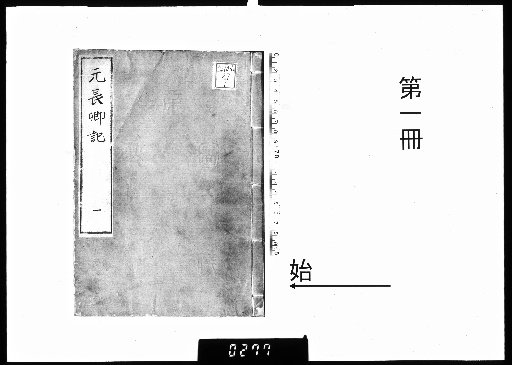 第一冊
元長卿記
一
始
0277